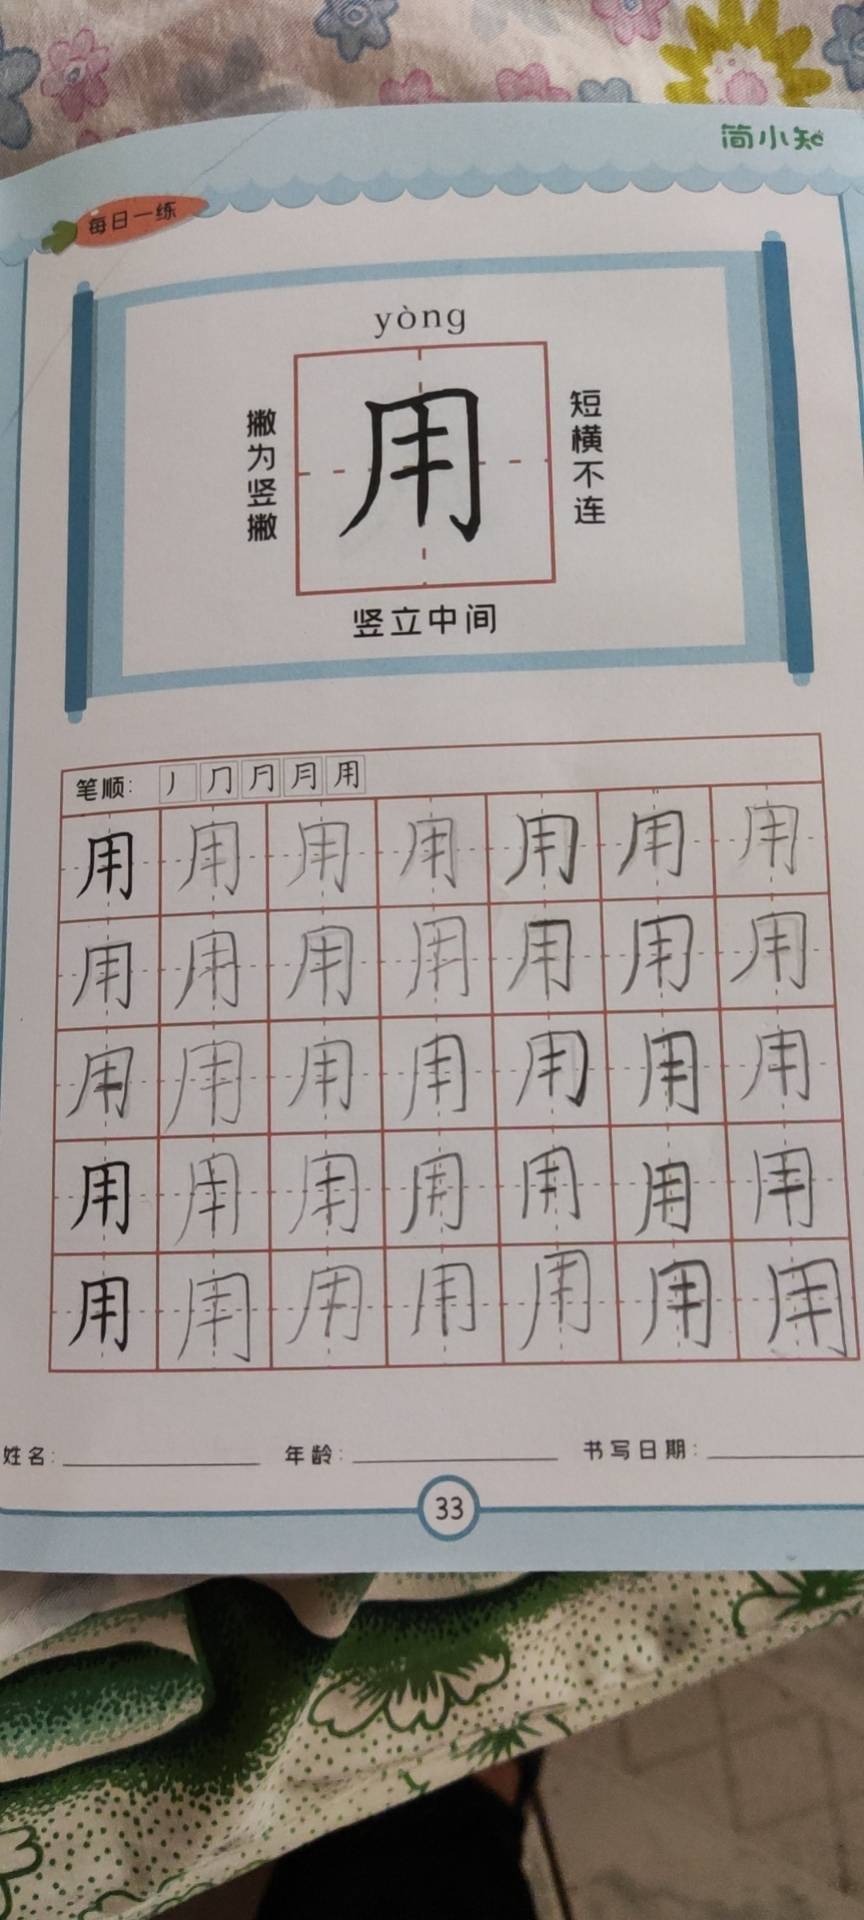 简小知
每日一练
yòng
撇为竖撇
用
短横不连
竖立中间
笔顺: 丿 ⺆ 月 月 用
用 用 用 用 用 用 用
用 用 用 用 用 用 用
用 用 用 用 用 用 用
用 用 用 用 用 用 用
用 用 用 用 用 用 用
姓名: 年龄: 书写日期:
33